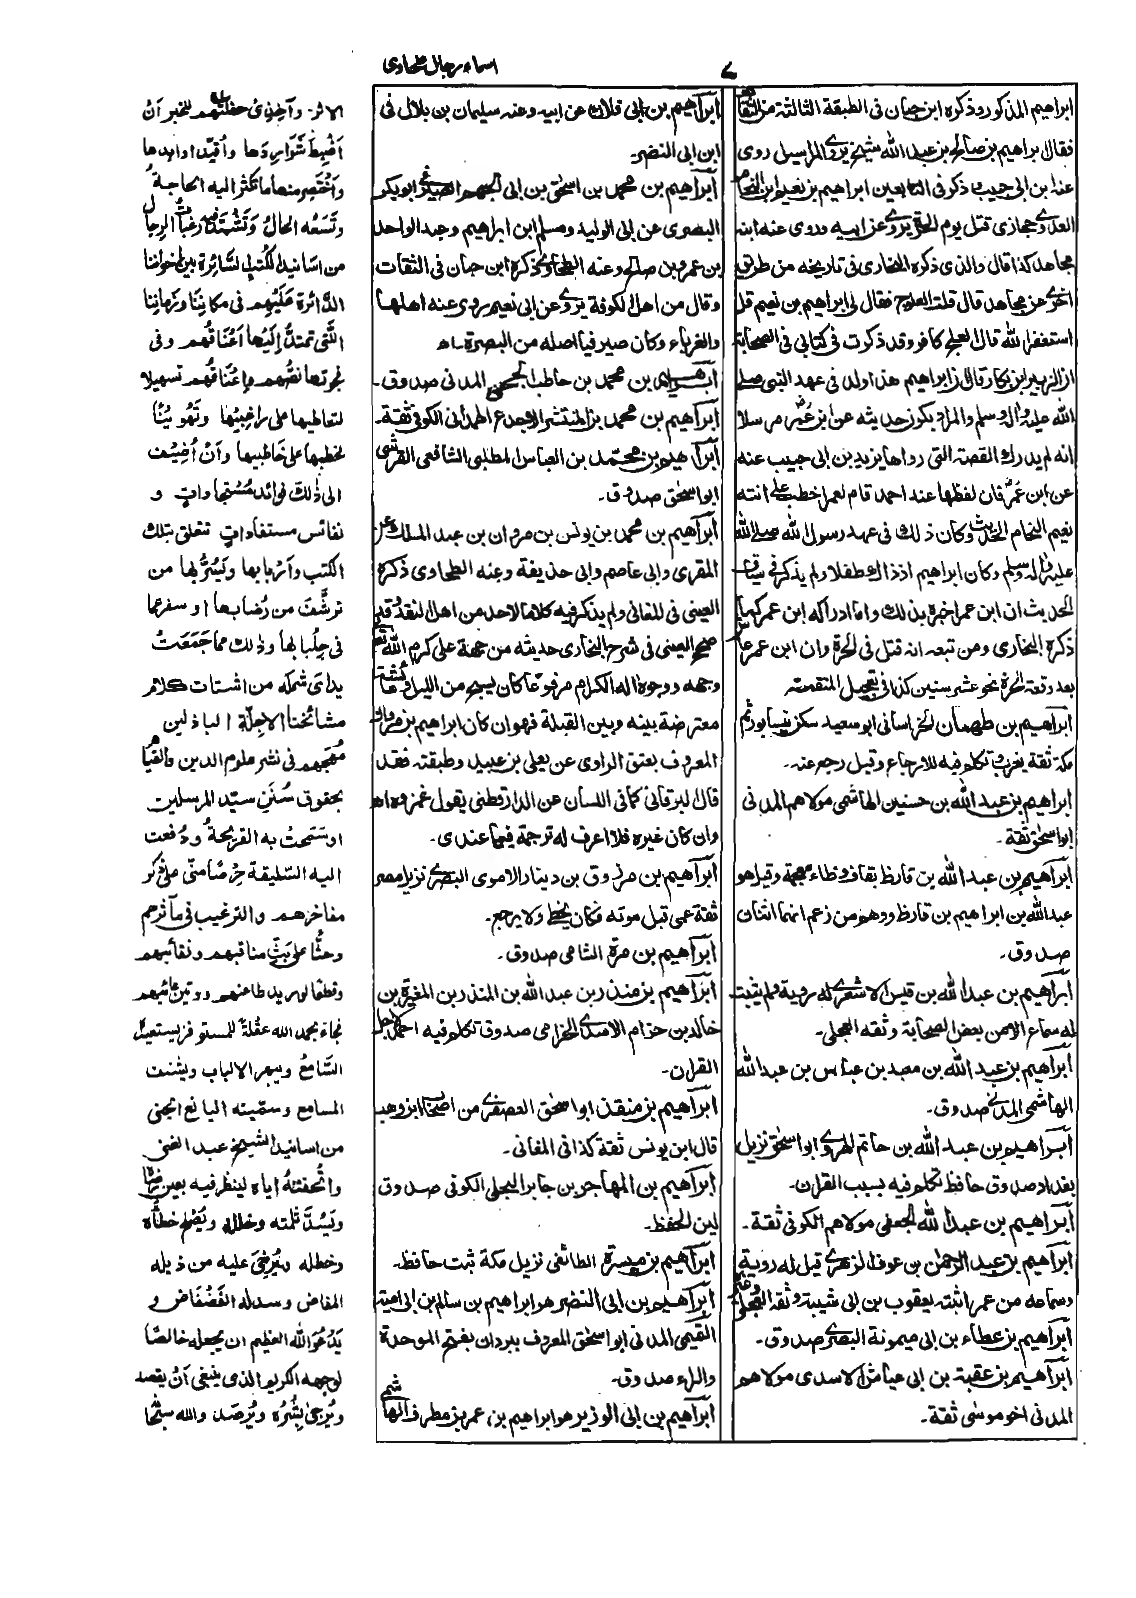 اسماء رجال طحاوی
۷
ابراهيم المذكور وذكره ابن حبان فى الطبقة الثالثة من الثقات
فقال ابراهيم بن صالح بن عبد الله شيخ يروى المراسيل روى
عنه ابن ابى حبيب ذكر فى التابعين ابراهيم بن نعيم ابن النحام
العدوى حجازى قتل يوم الحرة يروى عن ابيه وروى عنه ابنه
مجاهد كذا قال والذى ذكره البخارى فى تاريخه من طريق
اخرى عن مجاهد قال قلت العلوج فقال لى ابراهيم بن نعيم قل
استغفر الله قال العلج كافر وقد ذكرت فى كتابى فى الصحابة
ان الزبير بن بكار قال ان ابراهيم هذا ولد فى عهد النبى صلى
الله عليه واله وسلم والمراد بكون حديثه عن ابن عمر مرسلا
انه لم يدرك القصة التى رواها يزيد بن ابى حبيب عنه
عن ابن عمر فان لفظها عند احمد قام لعمر اخطب على ابنة
نعيم النحام الحديث وكان ذلك فى عهد رسول الله صلى الله
عليه واله وسلم وكان ابراهيم اذ ذاك طفلا ولم يذكر فى سياق
الحديث ان ابن عمر اخبره بذلك واما ادراكه ابن عمر كما
ذكره البخارى ومن تبعه انه قتل فى الحرة وان ابن عمر عاش
بعد وقعة الحرة نحو عشر سنين كذا فى تعجيل المنفعة
ابراهيم بن طهمان الخراسانى ابو سعيد سكن نيسابور ثم
مكة ثقة يغرب وتكلم فيه للارجاء وقيل رجع عنه.
ابراهيم بن عبد الله بن حنين الهاشمى مولاهم المدنى
ابو اسحٰق ثقة.
ابراهيم بن عبد الله بن قارظ بقاف وظاء معجمة وقيل هو
عبد الله بن ابراهيم بن قارظ ووهم من زعم انهما اثنان
صدوق.
ابراهيم بن عبد الله بن قيس الاشعرى له روية ولم يثبت
له سماع الا من بعض الصحابة وثقه العجلى.
ابراهيم بن عبد الله بن معبد بن عباس بن عبد الله
الهاشمى المدنى صدوق.
ابراهيم بن عبد الله بن حاتم الهروى ابو اسحٰق نزيل
بغداد صدوق حافظ تكلم فيه بسبب القران.
ابراهيم بن عبد الله الجعفى مولاهم الكوفى ثقة.
ابراهيم بن عبد الرحمٰن بن عوف الزهرى قيل له روية
وسماعه من عمر اثبته يعقوب بن ابى شيبة وثقه العجلى وغيره
ابراهيم بن عطاء بن ابى ميمونة البصرى صدوق.
ابراهيم بن عقبة بن ابى عياش الاسدى مولاهم
المدنى اخو موسى ثقة.
ابراهيم بن ابى فلان عن ابيه وعنه سليمان بن بلال فى
ابن ابى النضر.
ابراهيم بن محمد بن اسحٰق بن ابى الجهم الصيرفى ابو بكر
البصرى عن ابى الوليد ومسلم ابن ابراهيم وعبد الواحد
بن عمرو بن صالح وعنه الطحاوى ذكره ابن حبان فى الثقات
وقال من اهل الكوفة يروى عن ابى نعيم روى عنه اهلها
والغرباء وكان صيرفيا اصله من البصرة اه
ابراهيم بن محمد بن حاطب الجمحى المدنى صدوق.
ابراهيم بن محمد بن المنتشر الاجدع الهمدانى الكوفى ثقة.
ابراهيم بن محمد بن العباس المطلبى الشافعى القرشى
ابو اسحٰق صدوق.
ابراهيم بن محمد بن يونس بن مروان بن عبد الملك عن
المقرى وابى عاصم وابى حذيفة وعنه الطحاوى ذكره
العينى فى المغانى ولم يذكر فيه كلاما لاحد من اهل النقد قد
صحح العينى فى شرح البخارى حديثه من جهة على كرم الله تعالى
وجهه ووجوه اله الكرام مرفوعا كان يسبح من الليل وعائشة
معترضة بينه وبين القبلة فهو ان كان ابراهيم بن مرزوق
المعروف بعتق الراوى عن يعلى بن عبيد وطبقته فقد
قال البرقانى كما فى اللسان عن الدارقطنى يقول غمزوه اه
وان كان غيره فلا اعرف له ترجمة فيما عندى.
ابراهيم بن مرزوق بن دينار الاموى البصرى نزيل مصر
ثقة عمى قبل موته فكان يخطى ولا يرجع.
ابراهيم بن مرة الشامى صدوق.
ابراهيم بن منذر بن عبد الله بن المنذر بن المغيرة بن
خالد بن حزام الاسدى الحزامى صدوق تكلم فيه احمد لاجل
القران.
ابراهيم بن منقذ ابو اسحٰق العصفرى من اصحاب ابن وهب
قال ابن يونس ثقة كذا فى المغانى.
ابراهيم بن المهاجر بن جابر البجلى الكوفى صدوق
لين الحفظ.
ابراهيم بن ميسرة الطائفى نزيل مكة ثبت حافظ.
ابراهيم بن ابى النضر هو ابراهيم بن سالم بن ابى امية
التيمى المدنى ابو اسحٰق المعروف ببردان بفتح الموحدة
والراء صدوق.
ابراهيم بن ابى الوزير هو ابراهيم بن عمر بن مطرف الهاشمى
الاثر وآخذنى حفلتهم للخبر أن
اضبط شواردها واقيد اوابدها
واختصر منها ما تكثر اليه الحاجة
وتسعه الحال وتشتد فيه رغبات الرجال
من اسانيد الكتب السائرة بين اخواننا
الدائرة عليهم فى مكاننا وزماننا
التى تمتد إليها اعناقهم وفى
نجوتها نضهم وإعناقهم تسهيلا
لتعاطيها على راغبيها وتهوينا
لخطبها على خاطبيها وأن أضيف
الى ذلك فوائد مستجادات و
نفائس مستفادات تتعلق بتلك
الكتب وأربابها وتسر بها من
ترشف من رضابها او سفر عما
فى جلبابها وذلك مما جمعت
يداى شمله من اشتات كلام
مشائخنا الاجلة الباذلين
مهجهم فى نشر علوم الدين والقيام
بحقوق سنن سيد المرسلين
او سمحت به القريحة ودفعت
اليه السليقة حرصا منى على ذكر
مفاخرهم والترغيب فى مآثرهم
وحثا على بث مناقبهم ونقائبهم
وقطعا لوريد طاعنهم ووتين عائبهم
فجاء بحمد الله عقلة للمستوفز يستعيد
السامع ويبهر الالباب ويشنف
المسامع وسميته اليانع الجنى
من اسانيد الشيخ عبد الغنى
واتحفته اياه لينظر فيه بعين
ويسد ثلمته وخلله ويصلح خطأه
وخطله ويرخى عليه من ذيله
المفاض وسدله الفضفاض و
يدعو الله العظيم ان يجعله خالصا
لوجهه الكريم الذى ينبغى أن يقصد
ويرجى بشره ويرصد والله سبحانه